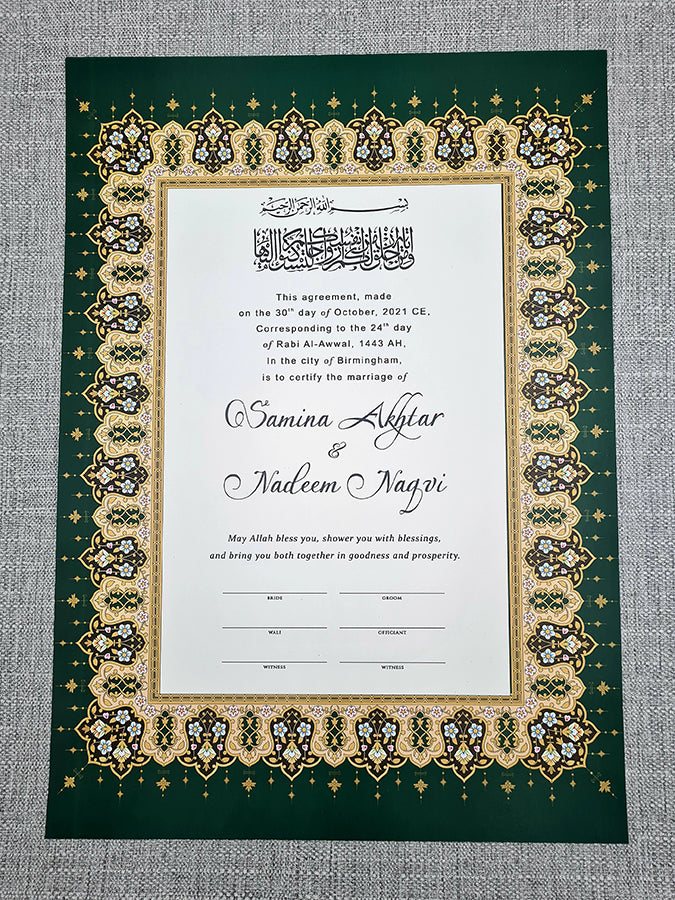 بسم الله الرحمن الرحيم
ومن آياته أن خلق لكم من أنفسكم أزواجا لتسكنوا إليها
This agreement, made
on the 30th day of October, 2021 CE,
Corresponding to the 24th day
of Rabi Al-Awwal, 1443 AH,
In the city of Birmingham,
is to certify the marriage of
Samina Akhtar
&
Nadeem Naqvi
May Allah bless you, shower you with blessings,
and bring you both together in goodness and prosperity.
BRIDE GROOM
WALI OFFICIANT
WITNESS WITNESS